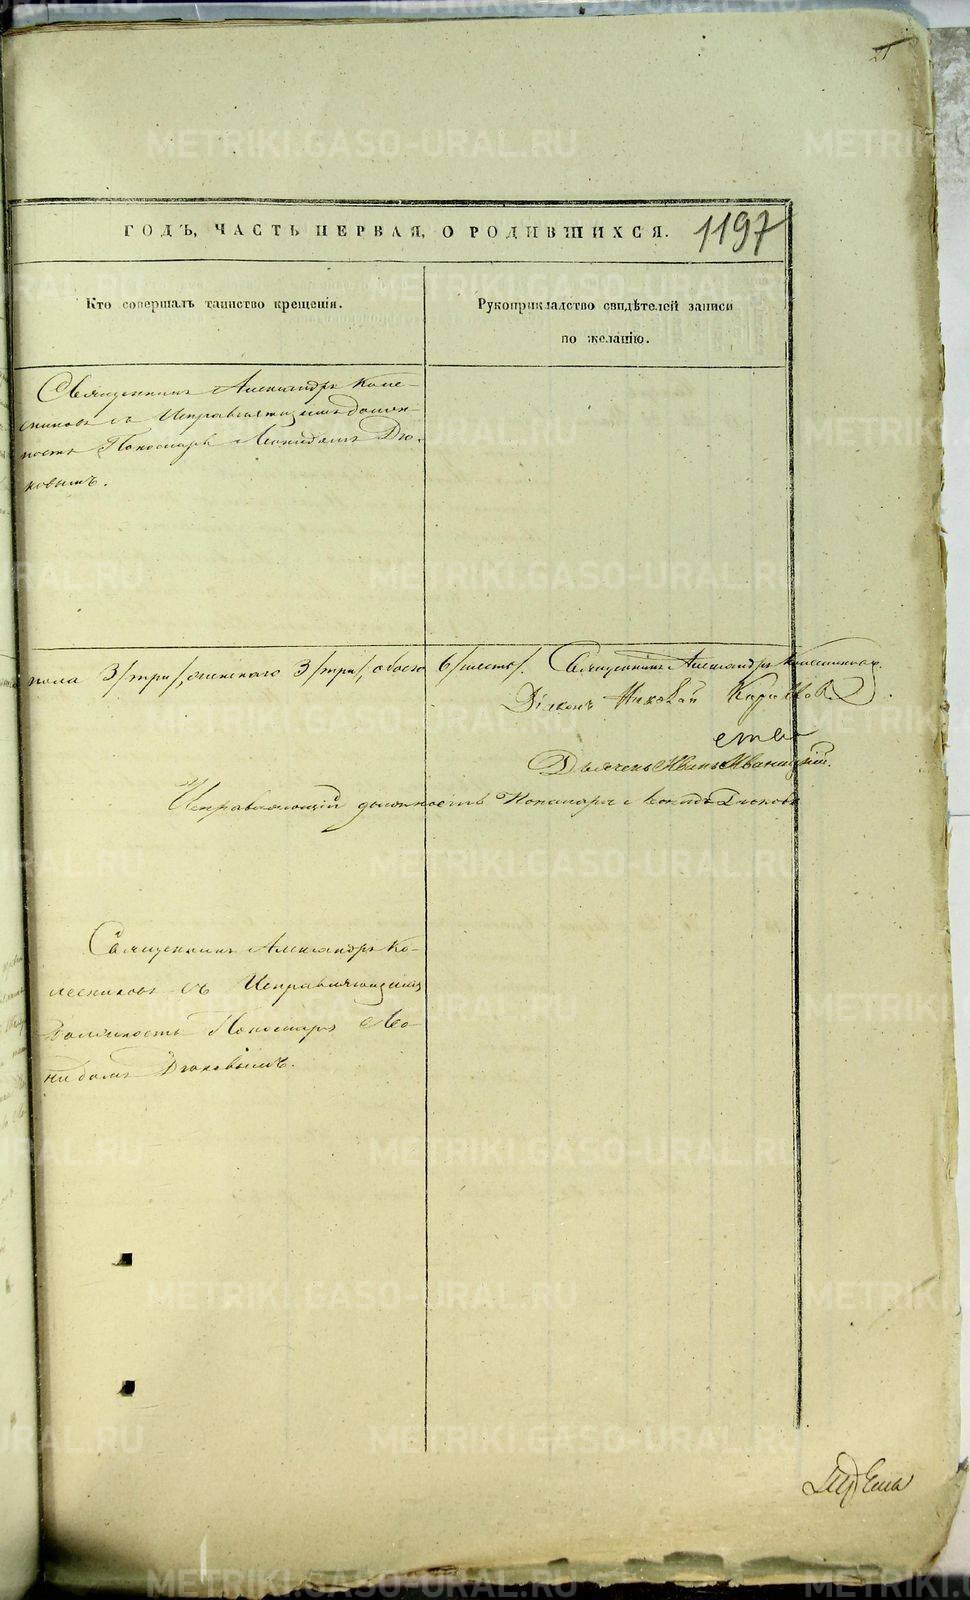 21
ГОДЪ, ЧАСТЬ ПЕРВАЯ, О РОДИВШИХСЯ.
1197
Кто совершалъ таинство крещенія.
Рукоприкладство свидѣтелей записи
по желанію.
Священникъ Александръ Коле-
сниковъ съ Исправляющимъ долж-
ность Пономаря Леонидомъ Дю-
ковымъ.
пола 3/три/, женскаго 3/три/, обоего 6/шесть/. Священникъ Александръ Колесниковъ.
Діаконъ Николай
Дьячекъ Иванъ Иваницкій.
Исправляющій должность Пономаря Леонидъ Дюковъ
Священникъ Александръ Ко-
лесниковъ съ Исправляющимъ
Должность Пономаря Лео-
нидомъ Дюковымъ.
METRIKI.GASO-URAL.RU